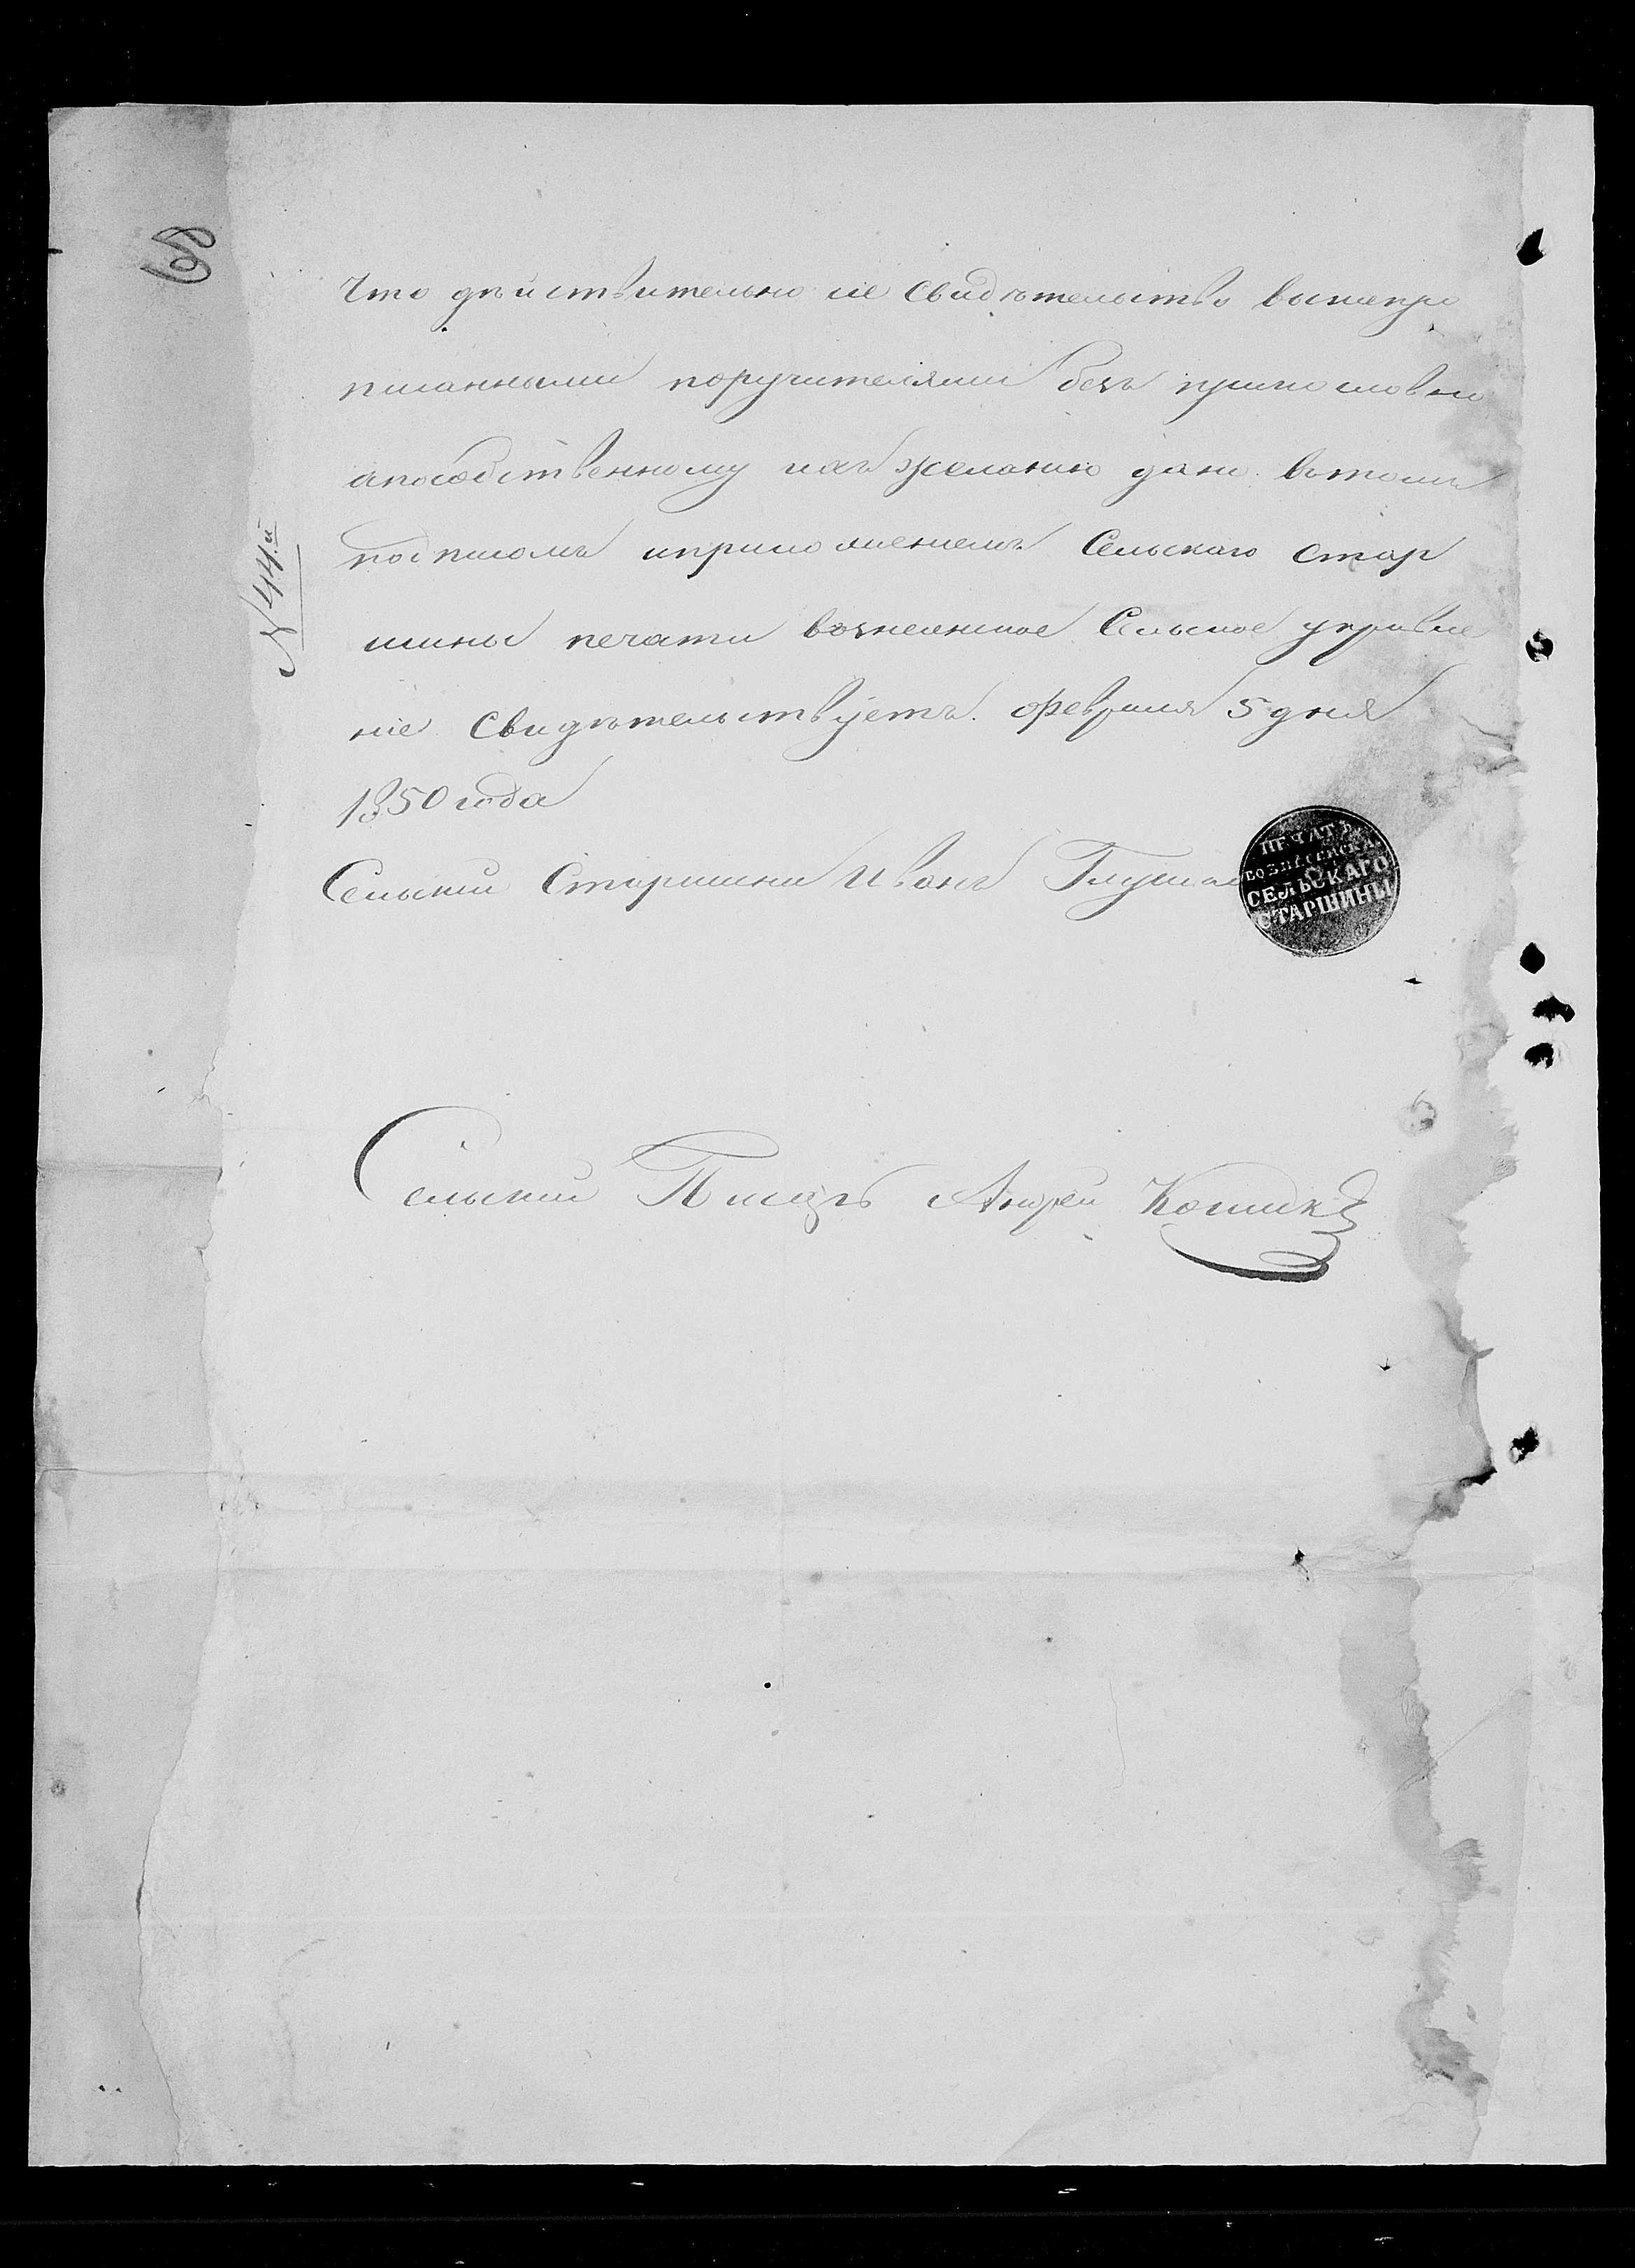 № 44.й
Что дѣйствительно сіе свидѣтельство вышепро
писанными поручителями безъ принословки
апособственному ихъ желанию дано вътомъ
подписомъ иприложениемъ Сельскаго стар
шины печати вознесенское Сельское управле
ніе свидѣтельствуетъ. февраля 5 дня
1850 года
Сельский Старшина Иванъ
ПЕЧАТЬ
ВОЗНЕСЕНСКА
СЕЛЬСКАГО
СТАРШИНЫ
Сельский Писарь Андрей